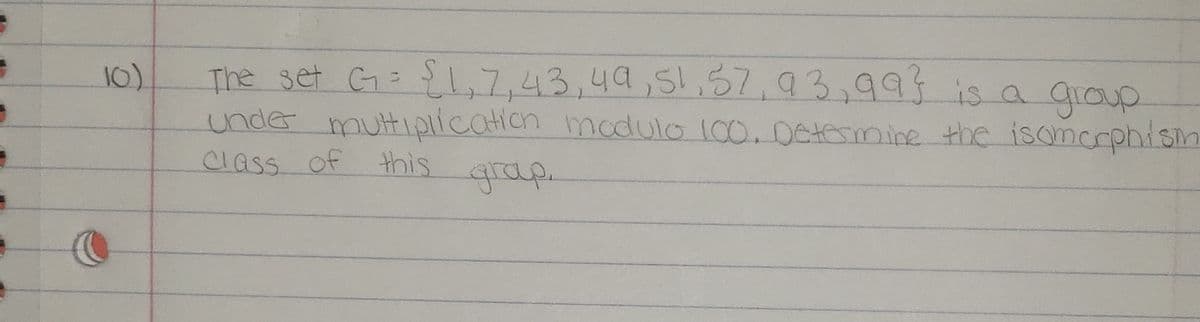 10) The set G = {1,7,43,49,51,57,93,99} is a group
under multiplication modulo 100. Determine the isomorphism
class of this group.